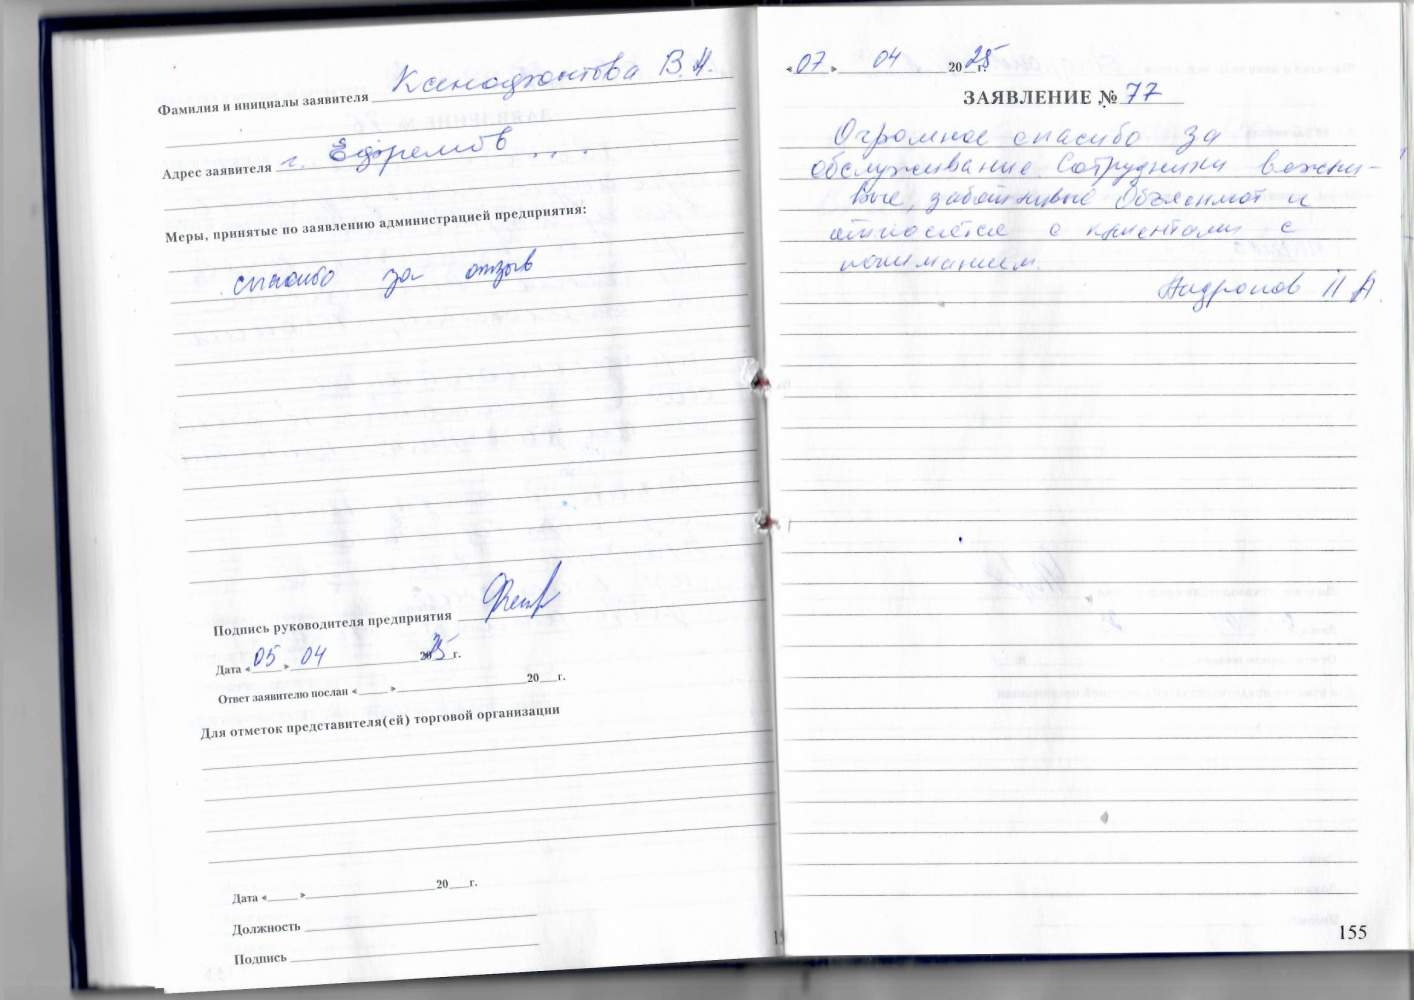 Фамилия и инициалы заявителя Ксенофонтова В.А.
Адрес заявителя г. Ефремов ....
Меры, принятые по заявлению администрацией предприятия:
спасибо за отзыв
Подпись руководителя предприятия
Дата «05» 04 2025 г.
Ответ заявителю послан « » 20 г.
Для отметок представителя(ей) торговой организации
Дата « » 20 г.
Должность
Подпись
«07» 04 2025 г.
ЗАЯВЛЕНИЕ № 77
Огромное спасибо за
обслуживание. Сотрудники вежли-
вые, заботливые Объясняют и
относятся с клиентами с
пониманием.
Андронов П А.
155